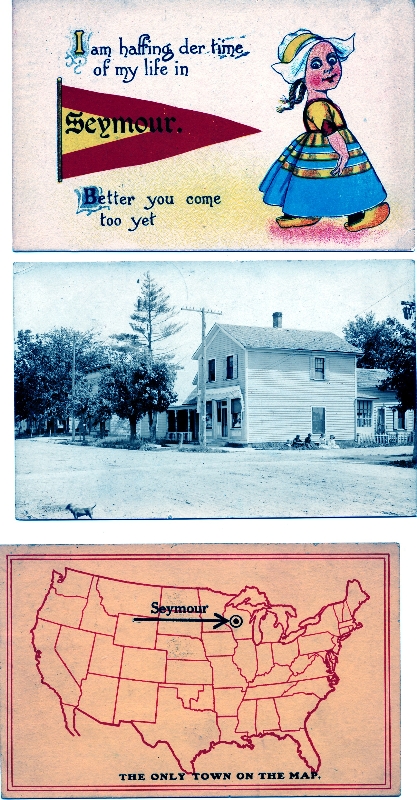 I am haffing der time
of my life in
Seymour.
Better you come
too yet
Seymour
THE ONLY TOWN ON THE MAP.